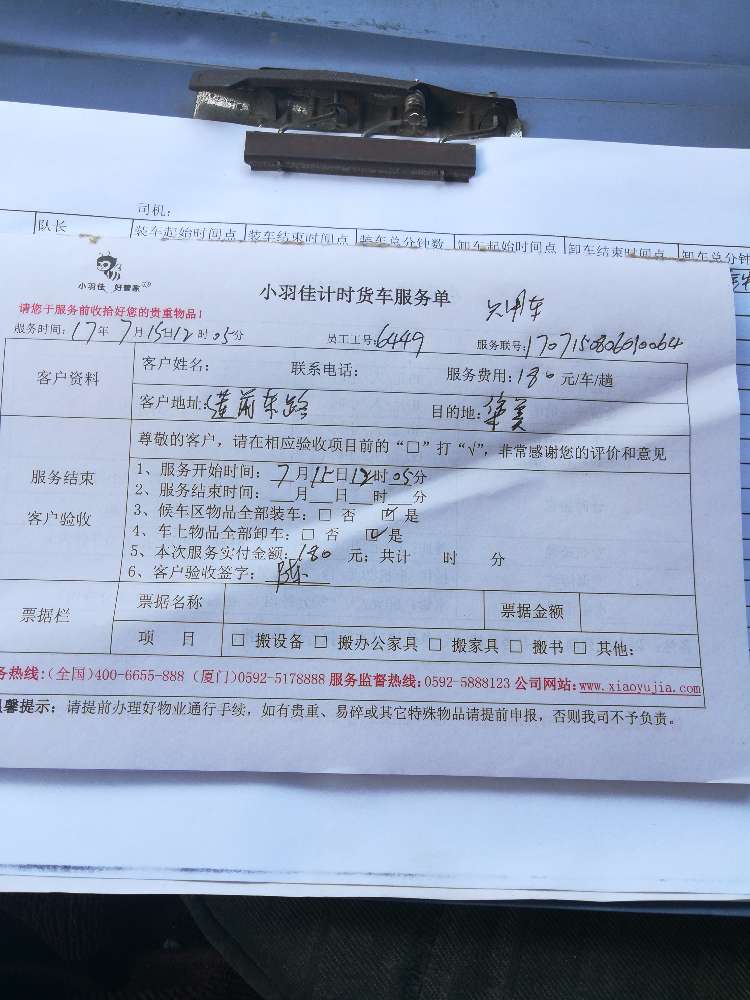 司机:
队长 装车起始时间点 装车结束时间点 装车总分钟数 卸车起始时间点 卸车结束时间点 卸车总分钟
小羽佳 好管家
小羽佳计时货车服务单 只用车
请您于服务前收拾好您的贵重物品!
服务时间: 17年 7月15日12时05分 员工工号: 6449 服务联号: 1707150806010064
客户资料
客户姓名: 联系电话: 服务费用: 180 元/车/趟
客户地址: 莲前东路 目的地: 华美
服务结束
客户验收
尊敬的客户，请在相应验收项目前的“□”打“√”，非常感谢您的评价和意见
1、服务开始时间: 7月15日12时05分
2、服务结束时间: 月 日 时 分
3、候车区物品全部装车: □ 否 ☑ 是
4、车上物品全部卸车: □ 否 ☑ 是
5、本次服务实付金额: 180 元; 共计 时 分
6、客户验收签字: 陈
票据栏 票据名称 票据金额
项 目 □ 搬设备 □ 搬办公家具 □ 搬家具 □ 搬书 □ 其他:
务热线:(全国)400-6655-888 (厦门)0592-5178888 服务监督热线:0592-5888123 公司网站:www.xiaoyujia.com
馨提示: 请提前办理好物业通行手续，如有贵重、易碎或其它特殊物品请提前申报，否则我司不予负责。